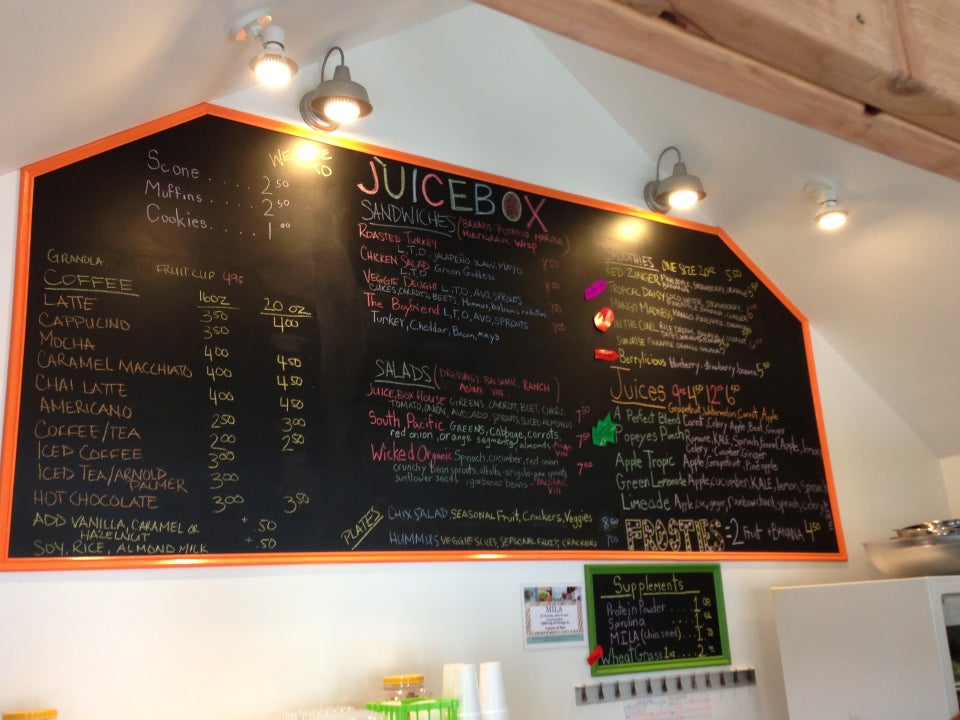 Scone ..... 2 50
Muffins ..... 2 50
Cookies ..... 1 00
GRANOLA
FRUIT CUP 4 95
COFFEE
16oz
20 oz
LATTE 3 50 4 00
CAPPUCINO 3 50
MOCHA 4 00 4 50
CARAMEL MACCHIATO 4 00 4 50
CHAI LATTE 4 00 4 50
AMERICANO 2 50 3 00
COFFEE/TEA 2 00 2 50
ICED COFFEE 3 00
ICED TEA/ARNOLD PALMER 3 00
HOT CHOCOLATE 3 00 3 50
ADD VANILLA, CARAMEL OR + .50
HAZELNUT
SOY, RICE, ALMOND MILK + .50
JUICEBOX
SANDWICHES (BREADS POTATOE, MARBLE
MULTIGRAIN Wrap)
ROASTED TURKEY
L,T,O, JALAPEÑO SLAW, MAYO
CHICKEN SALAD
L,T,O Green Goddess
VEGGIE DELIGHT L,T,O, AVO, SPROUTS
CUKES, CARROTS, BEETS, Hummus, balsamic
The Boyfriend L,T,O, AVO, SPROUTS
Turkey, Cheddar, Bacon, Mayo
SALADS (DRESSINGS BALSAMIC, RANCH
Asian VIN.)
JUICE BOX HOUSE GREENS, CARROT, BEET, CUKES,
TOMATO, ONION, AVO, SPROUTS, SLICED ALMONDS 7 50
South Pacific GREENS, Cabbage, carrots, 7 50
red onion, orange segments, almonds, Asian VIN
Wicked Organic Spinach, cucumber, red onion 7 50
crunchy bean sprouts, alfalfa
sunflower seeds, garbanzo beans - BALSAMIC VIN
PLATES
CHIX SALAD SEASONAL Fruit, Crackers, Veggies 8 50
HUMMUS VEGGIE SLICES, SEASONAL FRUIT, CRACKERS 7 00
SMOOTHIES ONE SIZE 20oz 5 50
RED ZINGER PINEAPPLE, STRAWBERRY, ORANGE
BANANA
TROPICAL DAISY COCO WATER, STRAWBERRY
MANGO MADNESS MANGO, PINEAPPLE
IN THE CURL
SUNRISE PINEAPPLE ORANGE BANANA
Berrylicious blueberry, strawberry, banana 5 50
Juices
Grapefruit, Watermelon, Carrot, Apple
A Perfect Blend Carrot, Celery, Apple, Beet, Ginger
Popeyes Punch Romaine, KALE, Spinach, Fennel, Apple, lemon
Celery - Cucumber, Ginger
Apple Tropic Apple, Grapefruit, Pineapple
Green Lemonade Apple, cucumber, KALE, lemon, Spinach
Limeade Apple, cuc, ginger, rainbow chard, spinach, celery
FROSTIES = 2 Fruit + BANANA 4 50
Supplements
Protein Powder .... 1 00
Spirulina
MILA (chia seed)
Wheat Grass 2oz
MILA